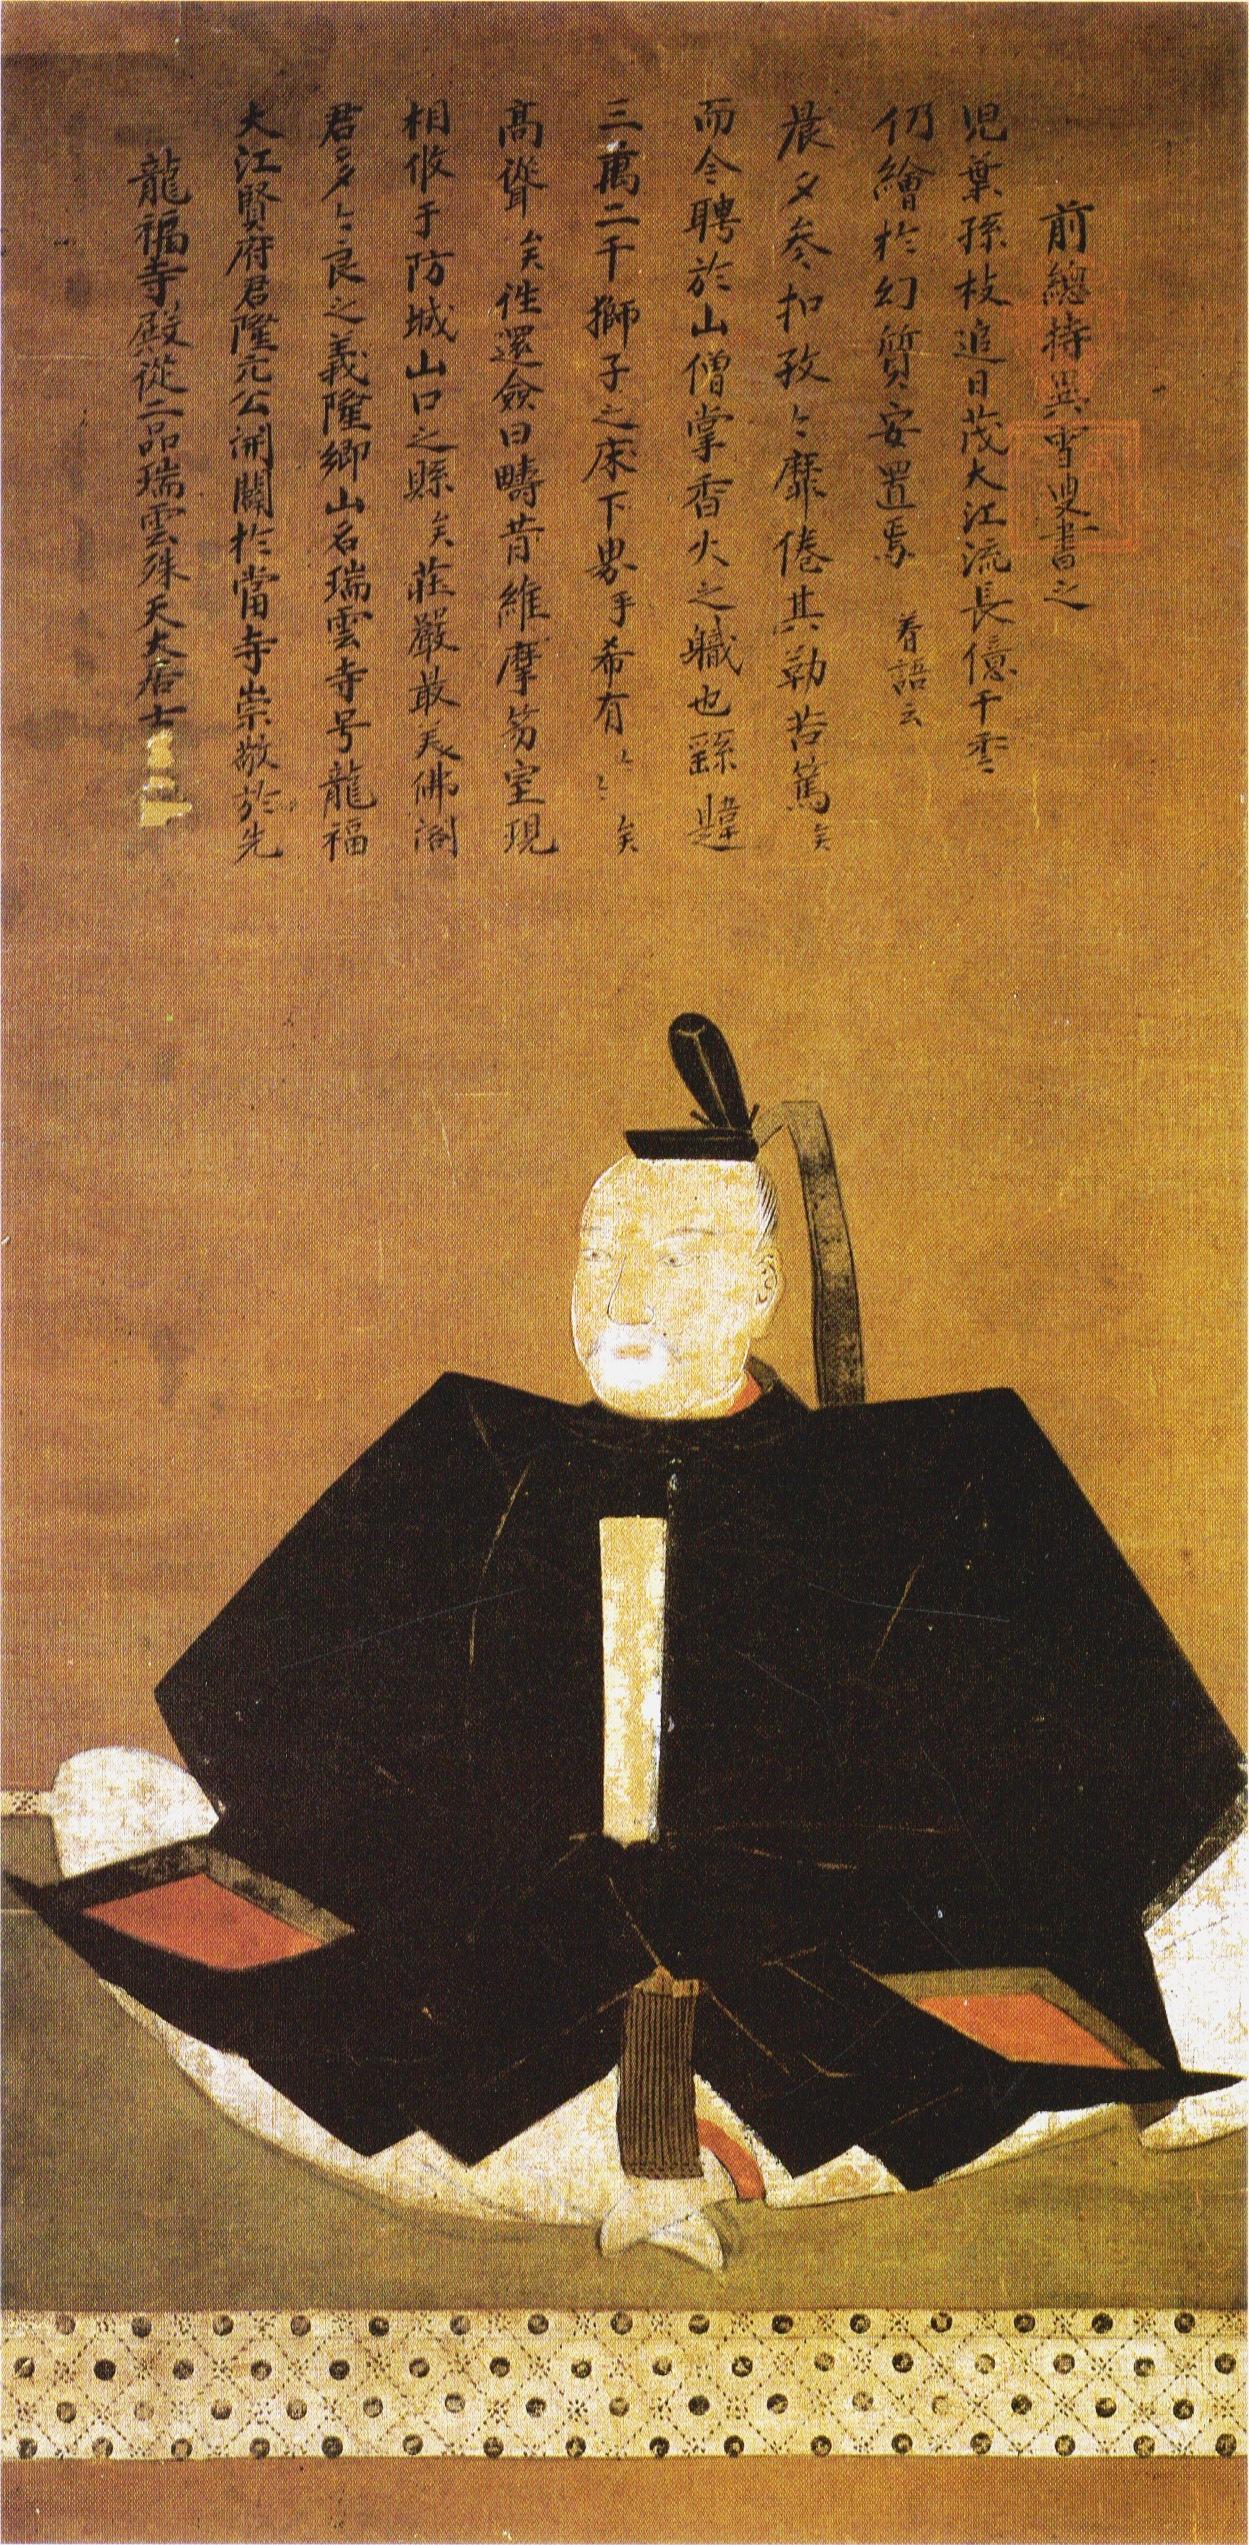 龍福寺殿從二品瑞雲珠天大居士
大江賢府君隆元公開闢於當寺崇敬於先
君多〻良之義隆卿山名瑞雲寺号龍福
相攸于防城山口之縣矣莊嚴最美佛閣
高聳矣性還僉曰疇昔維摩芴室現
三萬二千獅子之床下界乎希有〻〻矣
而今聘於山僧掌香火之職也繇韙
晨夕参扣孜〻靡倦其勤苦篤矣
仍繪於幻質安置焉 着語云
児葉孫枝追日茂大江流長億千零
前總持異雪叟書之